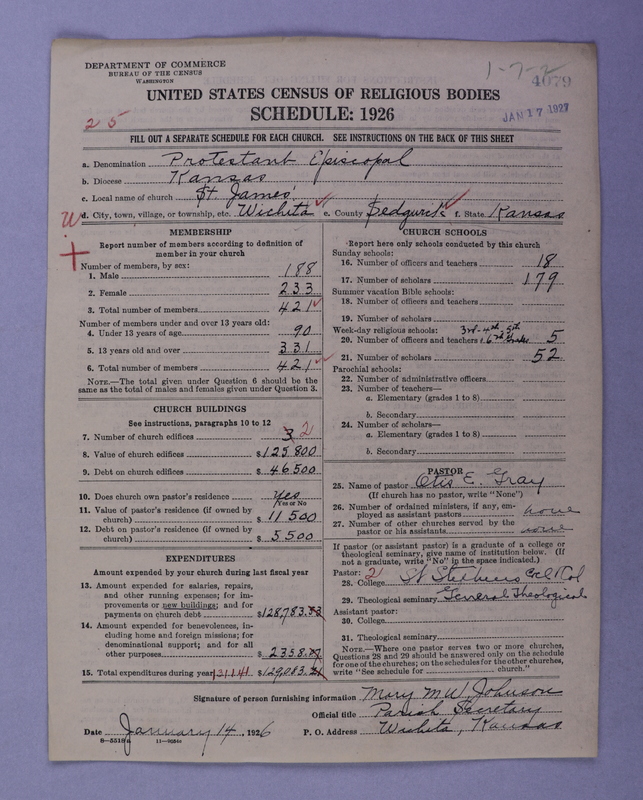 DEPARTMENT OF COMMERCE
BUREAU OF THE CENSUS
WASHINGTON
1-7-2
4079
UNITED STATES CENSUS OF RELIGIOUS BODIES
SCHEDULE: 1926
JAN 17 1927
25
FILL OUT A SEPARATE SCHEDULE FOR EACH CHURCH. SEE INSTRUCTIONS ON THE BACK OF THIS SHEET
a. Denomination Protestant Episcopal
b. Diocese Kansas
c. Local name of church St. James'
d. City, town, village, or township, etc. Wichita e. County Sedgwick f. State Kansas
MEMBERSHIP
Report number of members according to definition of
member in your church
Number of members, by sex:
1. Male 188
2. Female 233
3. Total number of members 421
Number of members under and over 13 years old:
4. Under 13 years of age 90
5. 13 years old and over 331
6. Total number of members 421
NOTE.—The total given under Question 6 should be the
same as the total of males and females given under Question 3.
CHURCH BUILDINGS
See instructions, paragraphs 10 to 12
7. Number of church edifices 3 2
8. Value of church edifices $125800
9. Debt on church edifices $46500
10. Does church own pastor's residence yes
Yes or No
11. Value of pastor's residence (if owned by
church) $11500
12. Debt on pastor's residence (if owned by
church) $5500
EXPENDITURES
Amount expended by your church during last fiscal year
13. Amount expended for salaries, repairs,
and other running expenses; for im-
provements or new buildings; and for
payments on church debt $128,783.83
14. Amount expended for benevolences, in-
cluding home and foreign missions; for
denominational support; and for all
other purposes $2358.
15. Total expenditures during year 131141 $129,083.
CHURCH SCHOOLS
Report here only schools conducted by this church
Sunday schools:
16. Number of officers and teachers 18
17. Number of scholars 179
Summer vacation Bible schools:
18. Number of officers and teachers
19. Number of scholars
Week-day religious schools: 3rd-4th-5th
20. Number of officers and teachers & 6th Grades 5
21. Number of scholars 52
Parochial schools:
22. Number of administrative officers
23. Number of teachers—
a. Elementary (grades 1 to 8)
b. Secondary
24. Number of scholars—
a. Elementary (grades 1 to 8)
b. Secondary
PASTOR
25. Name of pastor Otis E. Gray
(If church has no pastor, write "None")
26. Number of ordained ministers, if any, em-
ployed as assistant pastors none
27. Number of other churches served by the
pastor or his assistants none
If pastor (or assistant pastor) is a graduate of a college or
theological seminary, give name of institution below. (If
not a graduate, write "No" in the space indicated.)
Pastor: 2
28. College St Stephens Col
29. Theological seminary General Theological
Assistant pastor:
30. College
31. Theological seminary
NOTE.—Where one pastor serves two or more churches,
Questions 28 and 29 should be answered only on the schedule
for one of the churches; on the schedules for the other churches,
write "See schedule for church."
Signature of person furnishing information Mary M W Johnson
Official title Parish Secretary
Date January 14, 1926 P. O. Address Wichita, Kansas